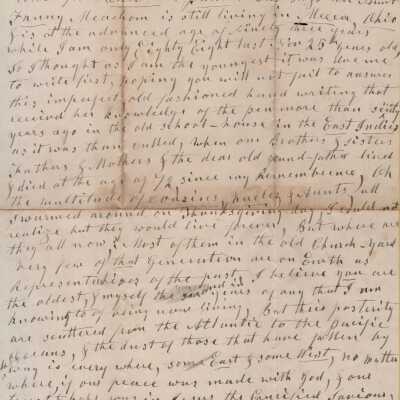 Fanny Meachom is still living in Mecca, Ohio
& is at the advanced age of Ninety three years
while I am only Eighty Eight last Nov 25th years old,
So I thought as I am the youngest it was due me
to write first, hoping you will not fail to answer
this imperfect old fashioned hand writing that
received her knowledge of the pen more than sixty
years ago in the old school-house in the East Indies
as it was than called, when our Brothers & sisters
& Fathers & Mothers & the dear old grand-father lived
& died at the age of 72 since my Remembrence, Oh
the multitude of Cousins, Uncles & Aunts, all
swarmed around on Thanksgiving day, I could not
realize but they would live forever, But where are
they all now? Most of them in the old Church-Yard
Very few of that Generation are on Earth as
Representatives of the past, I believe you are
the oldest, & myself the second in years of any that I am
knowing to of being now living, But their posterity
are scattered from the Atlantic to the Pacific
Oceans, & the dust of those that have fallen by
way is every where, some East & some West, no matter
where, if our peace was made with God, & our
in Jesus the Crucified Saviour,